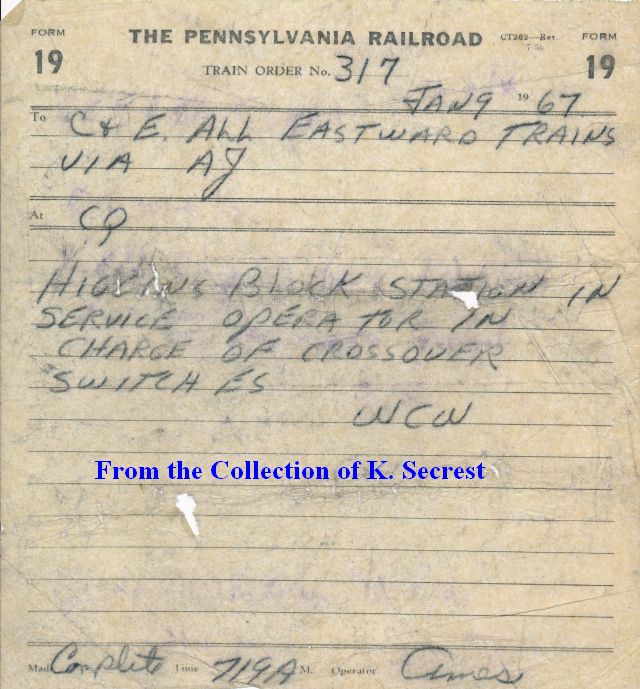 FORM THE PENNSYLVANIA RAILROAD CT262—Rev. 7-56 FORM
19 TRAIN ORDER No. 317 19
JAN 9 1967
To C & E. ALL EASTWARD TRAINS
VIA AJ
At CQ
BLOCK STATION IN
SERVICE OPERATOR IN
CHARGE OF CROSSOVER
SWITCHES
WCW
From the Collection of K. Secrest
Made Complete Time 719 A M. Operator Ames